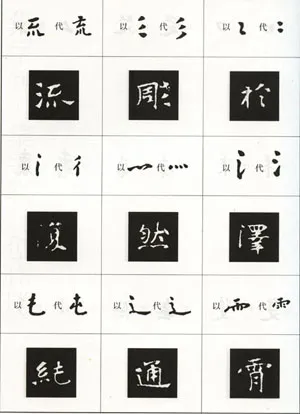 以 㐬 代 㐬 以 彡 代 彡 以 代 冫
流 彫 於
以 代 彳 以 代 灬 以 代 氵
復 然 澤
以 代 屯 以 辶 代 辶 以 雨 代 雨
純 通 霄